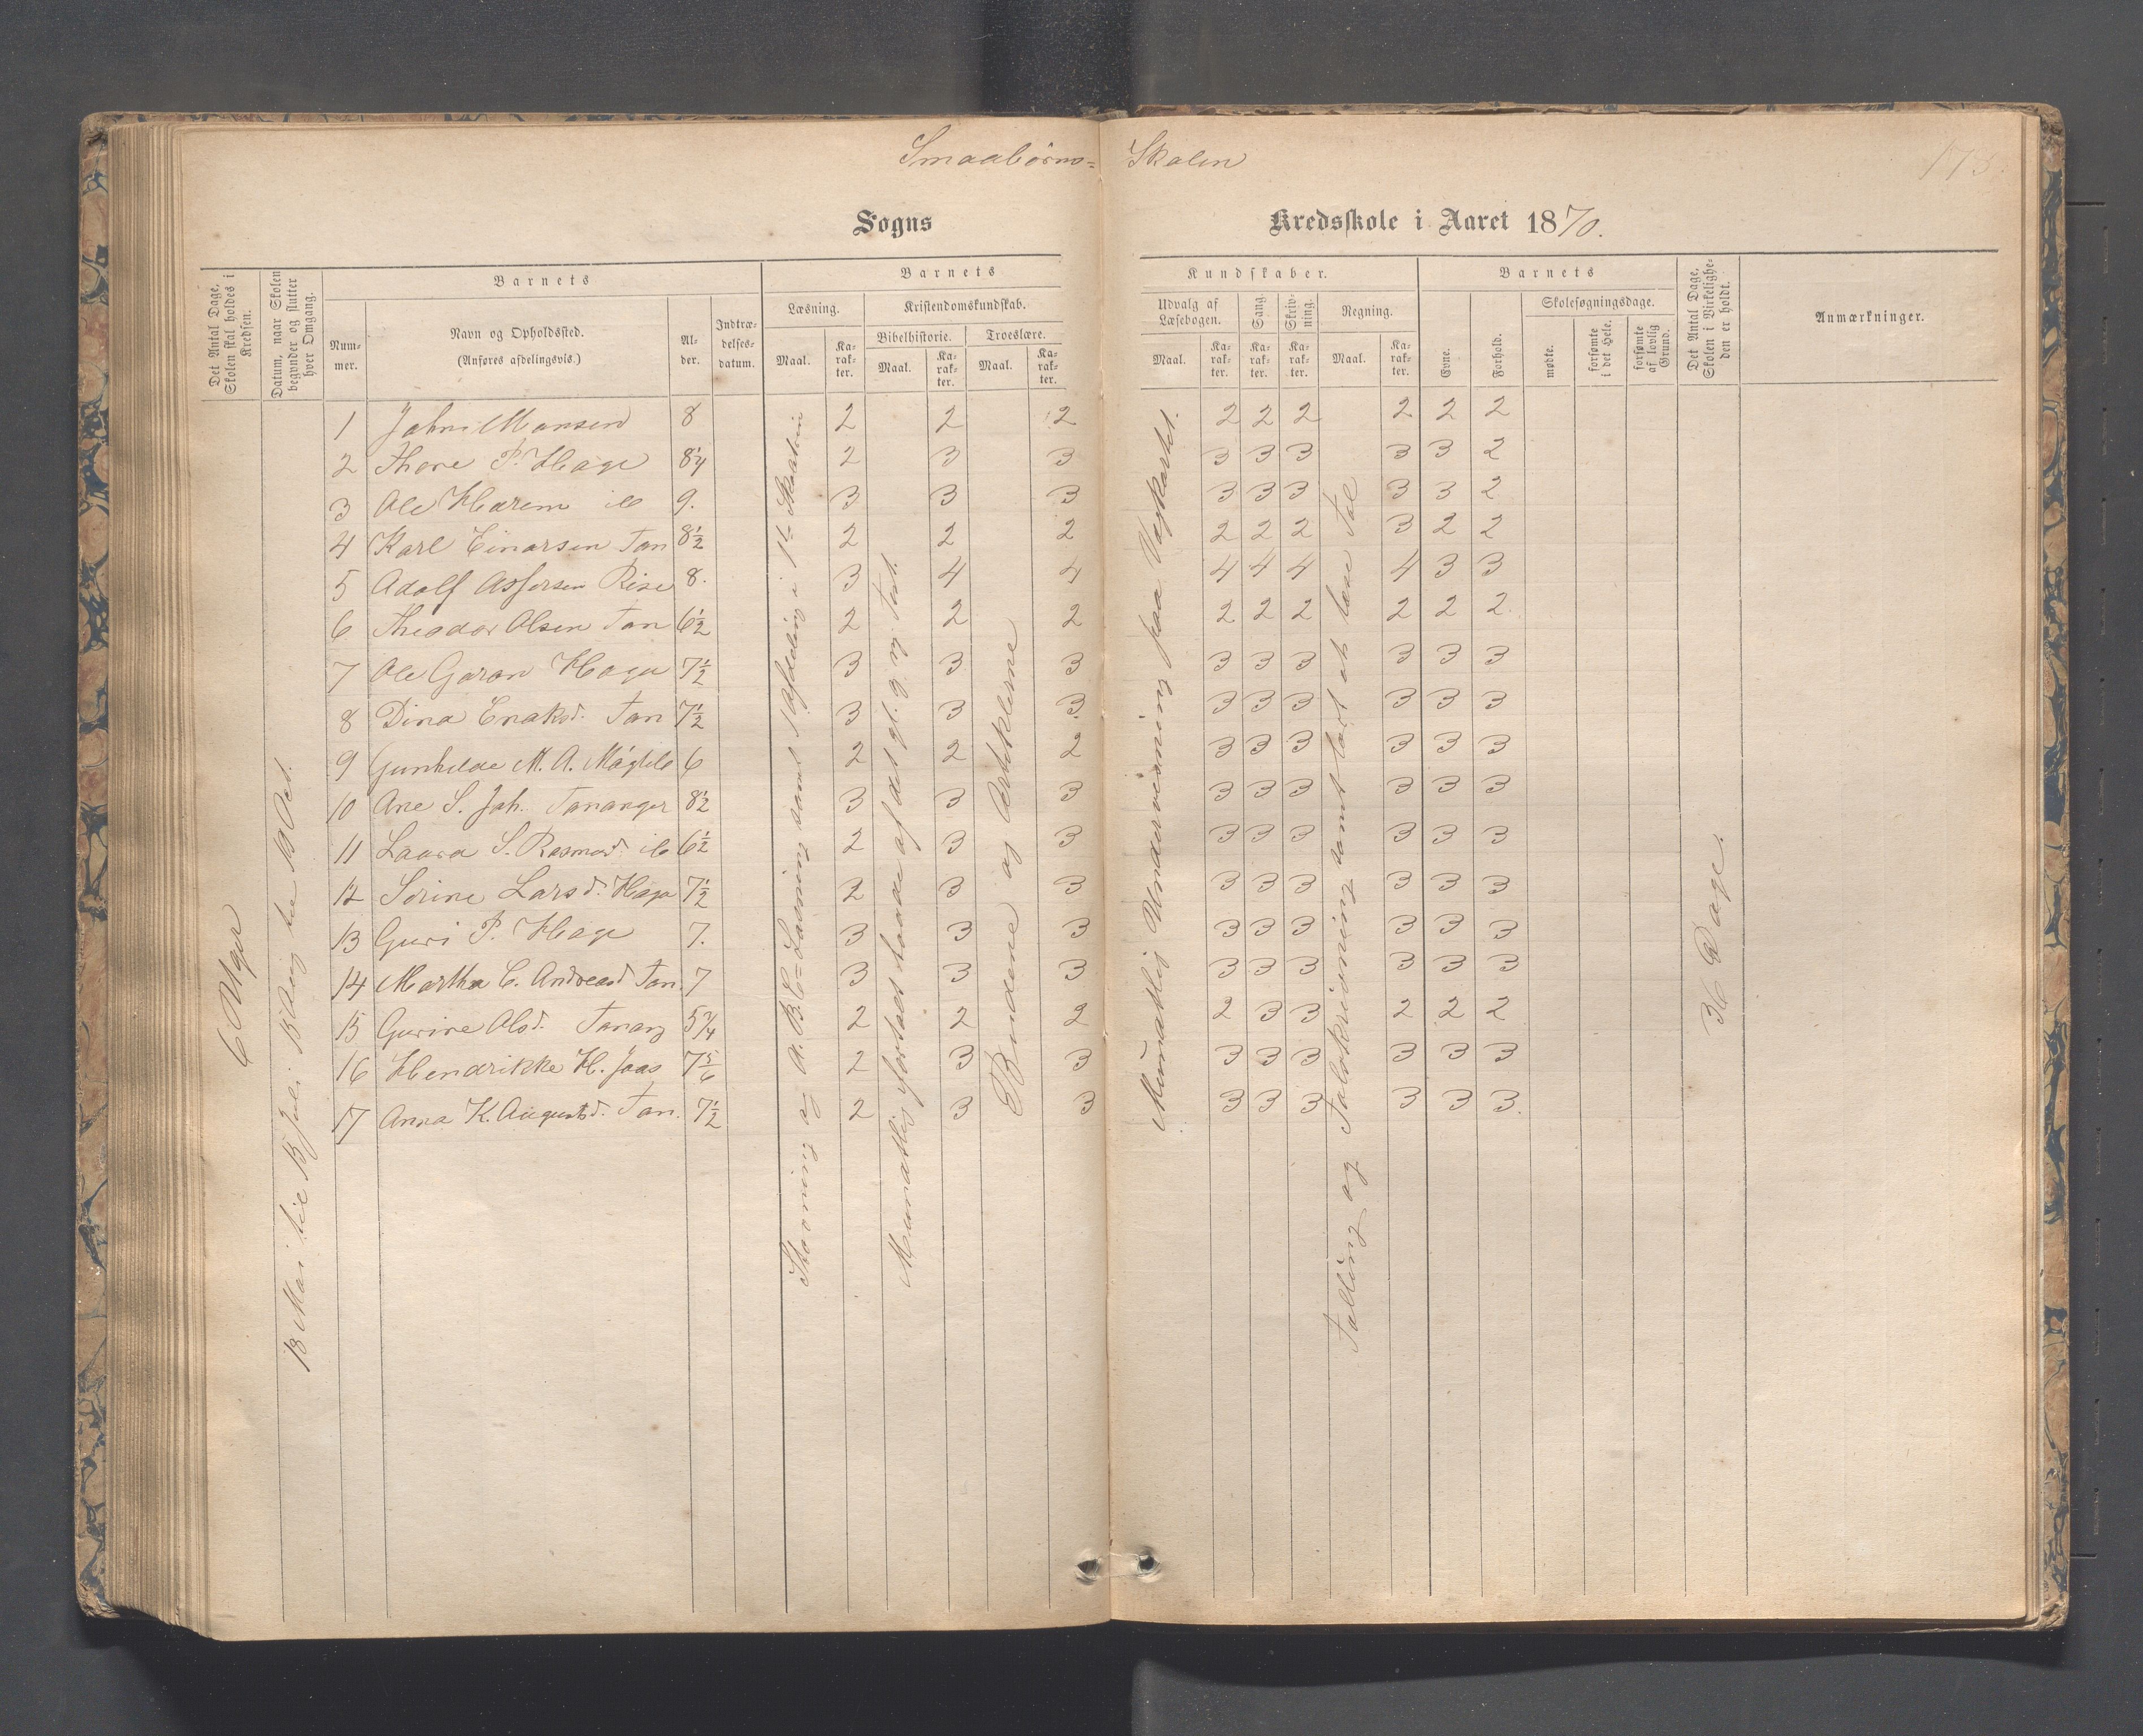 Smaabørns= Skolen
173.
Sogns Kredsskole i Aaret 1870.
Det Antal Dage, Skolen skal holdes i Kredsen.
Datum, naar Skolen begynder og slutter hver Omgang.
Barnets
Nummer.
Navn og Opholdssted.
(Anføres afdelingsvis.)
Alder.
Indtrædelsesdatum.
Barnets Kundskaber.
Læsning.
Maal.
Karakter.
Kristendomskundskab.
Bibelhistorie.
Maal.
Karakter.
Troeslære.
Maal.
Karakter.
Udvalg af Læsebogen.
Maal.
Karakter.
Sang.
Karakter.
Skrivning.
Karakter.
Regning.
Maal.
Karakter.
Barnets
Evne.
Forhold.
Skolesøgningsdage.
mødte.
forsømte i det Hele.
forsømte af lovlig Grund.
Det Antal Dage, Skolen i Virkeligheden er holdt.
Anmærkninger.
6 Uger
18 Mai til 13 Juli. 13 Aug til 13 Oct.
Stavning og A.B.C=Læsning samt 1 Afdeling i 1te
Mundtlig fortalt baade af det gl. og ny Test.
Budene og Artiklerne
Mundtlig Undervisning paa
Tælling og Talskrivning samt lært at læse Tal
36 Dage.
1 John Monsen 8 2 2 2 2 2 2 2 2 2
2 Thore P. Haga 8¼ 2 3 3 3 3 3 3 3 2
3 Ole Harem ib 9. 3 3 3 3 3 3 3 3 2
4 Karl Einarsen Tan 8½ 2 2 2 2 2 2 3 2 2
5 Adolf Asserson Risa 8. 3 4 4 4 4 4 4 3 3
6 Theodor Olsen Tan 6½ 2 2 2 2 2 2 2 2 2.
7 Ole Goran Haga 7½ 3 3 3 3 3 3 3 3 3
8 Dina Enoksd. Tan 7½ 3 3 3 3 3 3 3 3 3
9 Gunhilde M. A. 6 2 2 2 3 3 3 3 3 3
10 Ane S. Joh. Tananger 8½ 3 3 3 3 3 3 3 3 3
11 Laura S. Rasmusd. ib 6½ 2 3 3 3 3 3 3 3 3
12 Serine Larsd. Haga 7½ 2 3 3 3 3 3 3 3 3
13 Guri P. Haga 7. 3 3 3 3 3 3 3 3 3
14 Martha C. Andreasd Tan. 7 3 3 3 3 3 3 3 3 3
15 Gurine Olsd. Tanang 5¾ 2 2 2 2 3 3 2 2 2
16 Hendrikke H. Jaas 7⅚ 2 3 3 3 3 3 3 3 3
17 Anna K. Augustsd. Tan. 7½ 2 3 3 3 3 3 3 3 3.